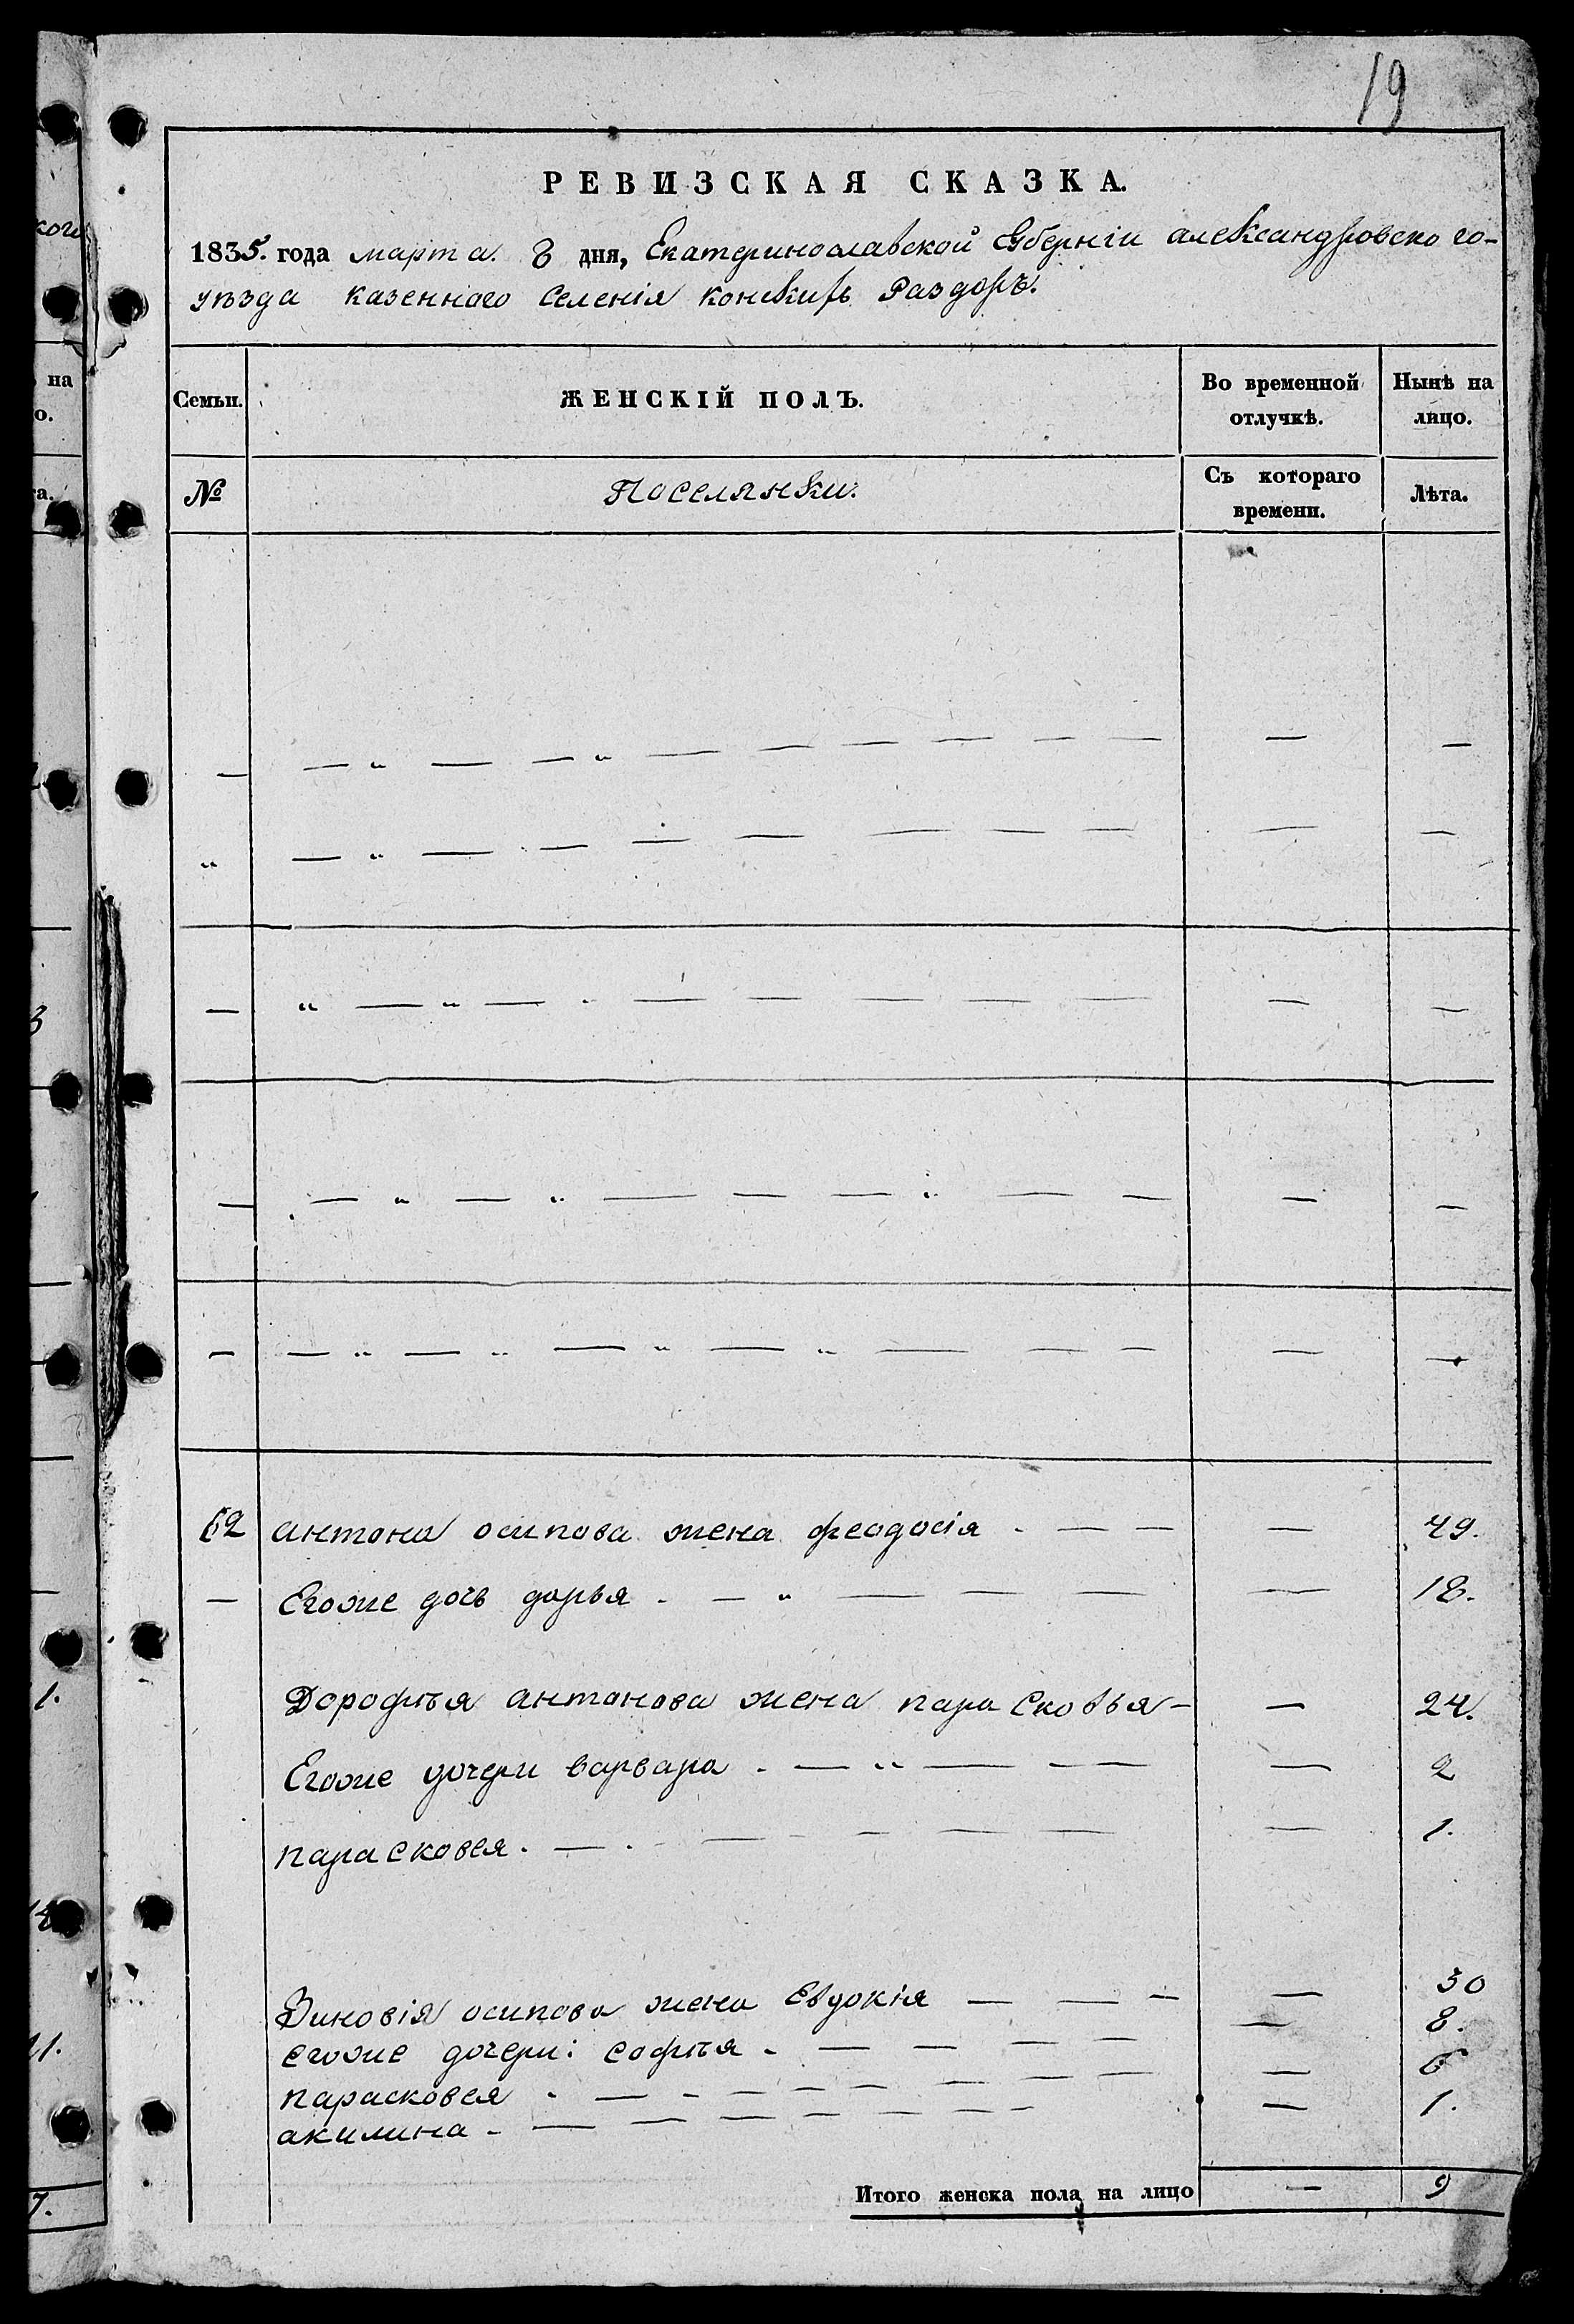 19
РЕВИЗСКАЯ СКАЗКА.
1835. года марта. 8 дня, Екатеринославской Губерніи александровско го-
уѣзда казеннаго Селенія конскихъ Раздоръ.
Семьи. ЖЕНСКІЙ ПОЛЪ. Во временной отлучкѣ. Нынѣ на лицо.
№ Поселянки. Съ котораго времени. Лѣта.
— — „ — — „ — — — — — — — —
„ — „ — — — — — — — — —
— „ — „ — — — — — — — —
— — „ — „ — — — „ — — — —
— — „ — „ — „ — „ — — — — —
62 антона осипова жена феодосія — — — 49.
— Егоже дочь дарья — „ — — — — 18.
Дорофѣя антонова жена парасковья — — 24.
Егоже дочери варвара — „ — — — — 2
парасковея. — — — — — — 1.
Зиновія осипова жена Евдокія — — — — 30
егоже дочери: софѣя — — — — — 8.
парасковея — — — — — — — — 6
акилина — — — — — — — — 1.
Итого женска пола на лицо — 9
кого
на
о.
та.
3
1.
11.
7.